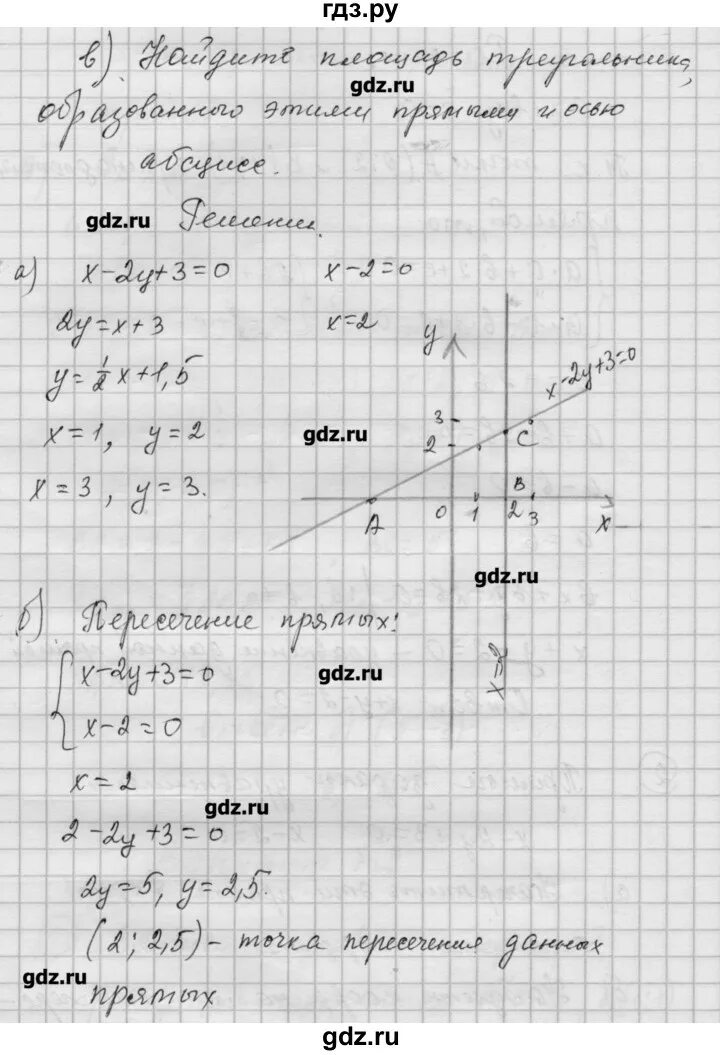 гдз.ру
в) Найдите площадь треугольника,
gdz.ru
образованного этими прямыми и осью
абсцисс.
gdz.ru Решение.
а) x-2y+3=0 x-2=0
2y=x+3 x=2
y
y=1/2 x+1,5
x-2y+3=0
x=1, y=2
gdz.ru
3
2
C
x=3, y=3.
A 0 1 B 2 3 x
gdz.ru
б) Пересечение прямых:
x-2y+3=0
gdz.ru
x=2
x-2=0
x=2
gdz.ru
2-2y+3=0
2y=5, y=2,5.
(2; 2,5) - точка пересечения данных
gdz.ru
прямых
gdz.ru